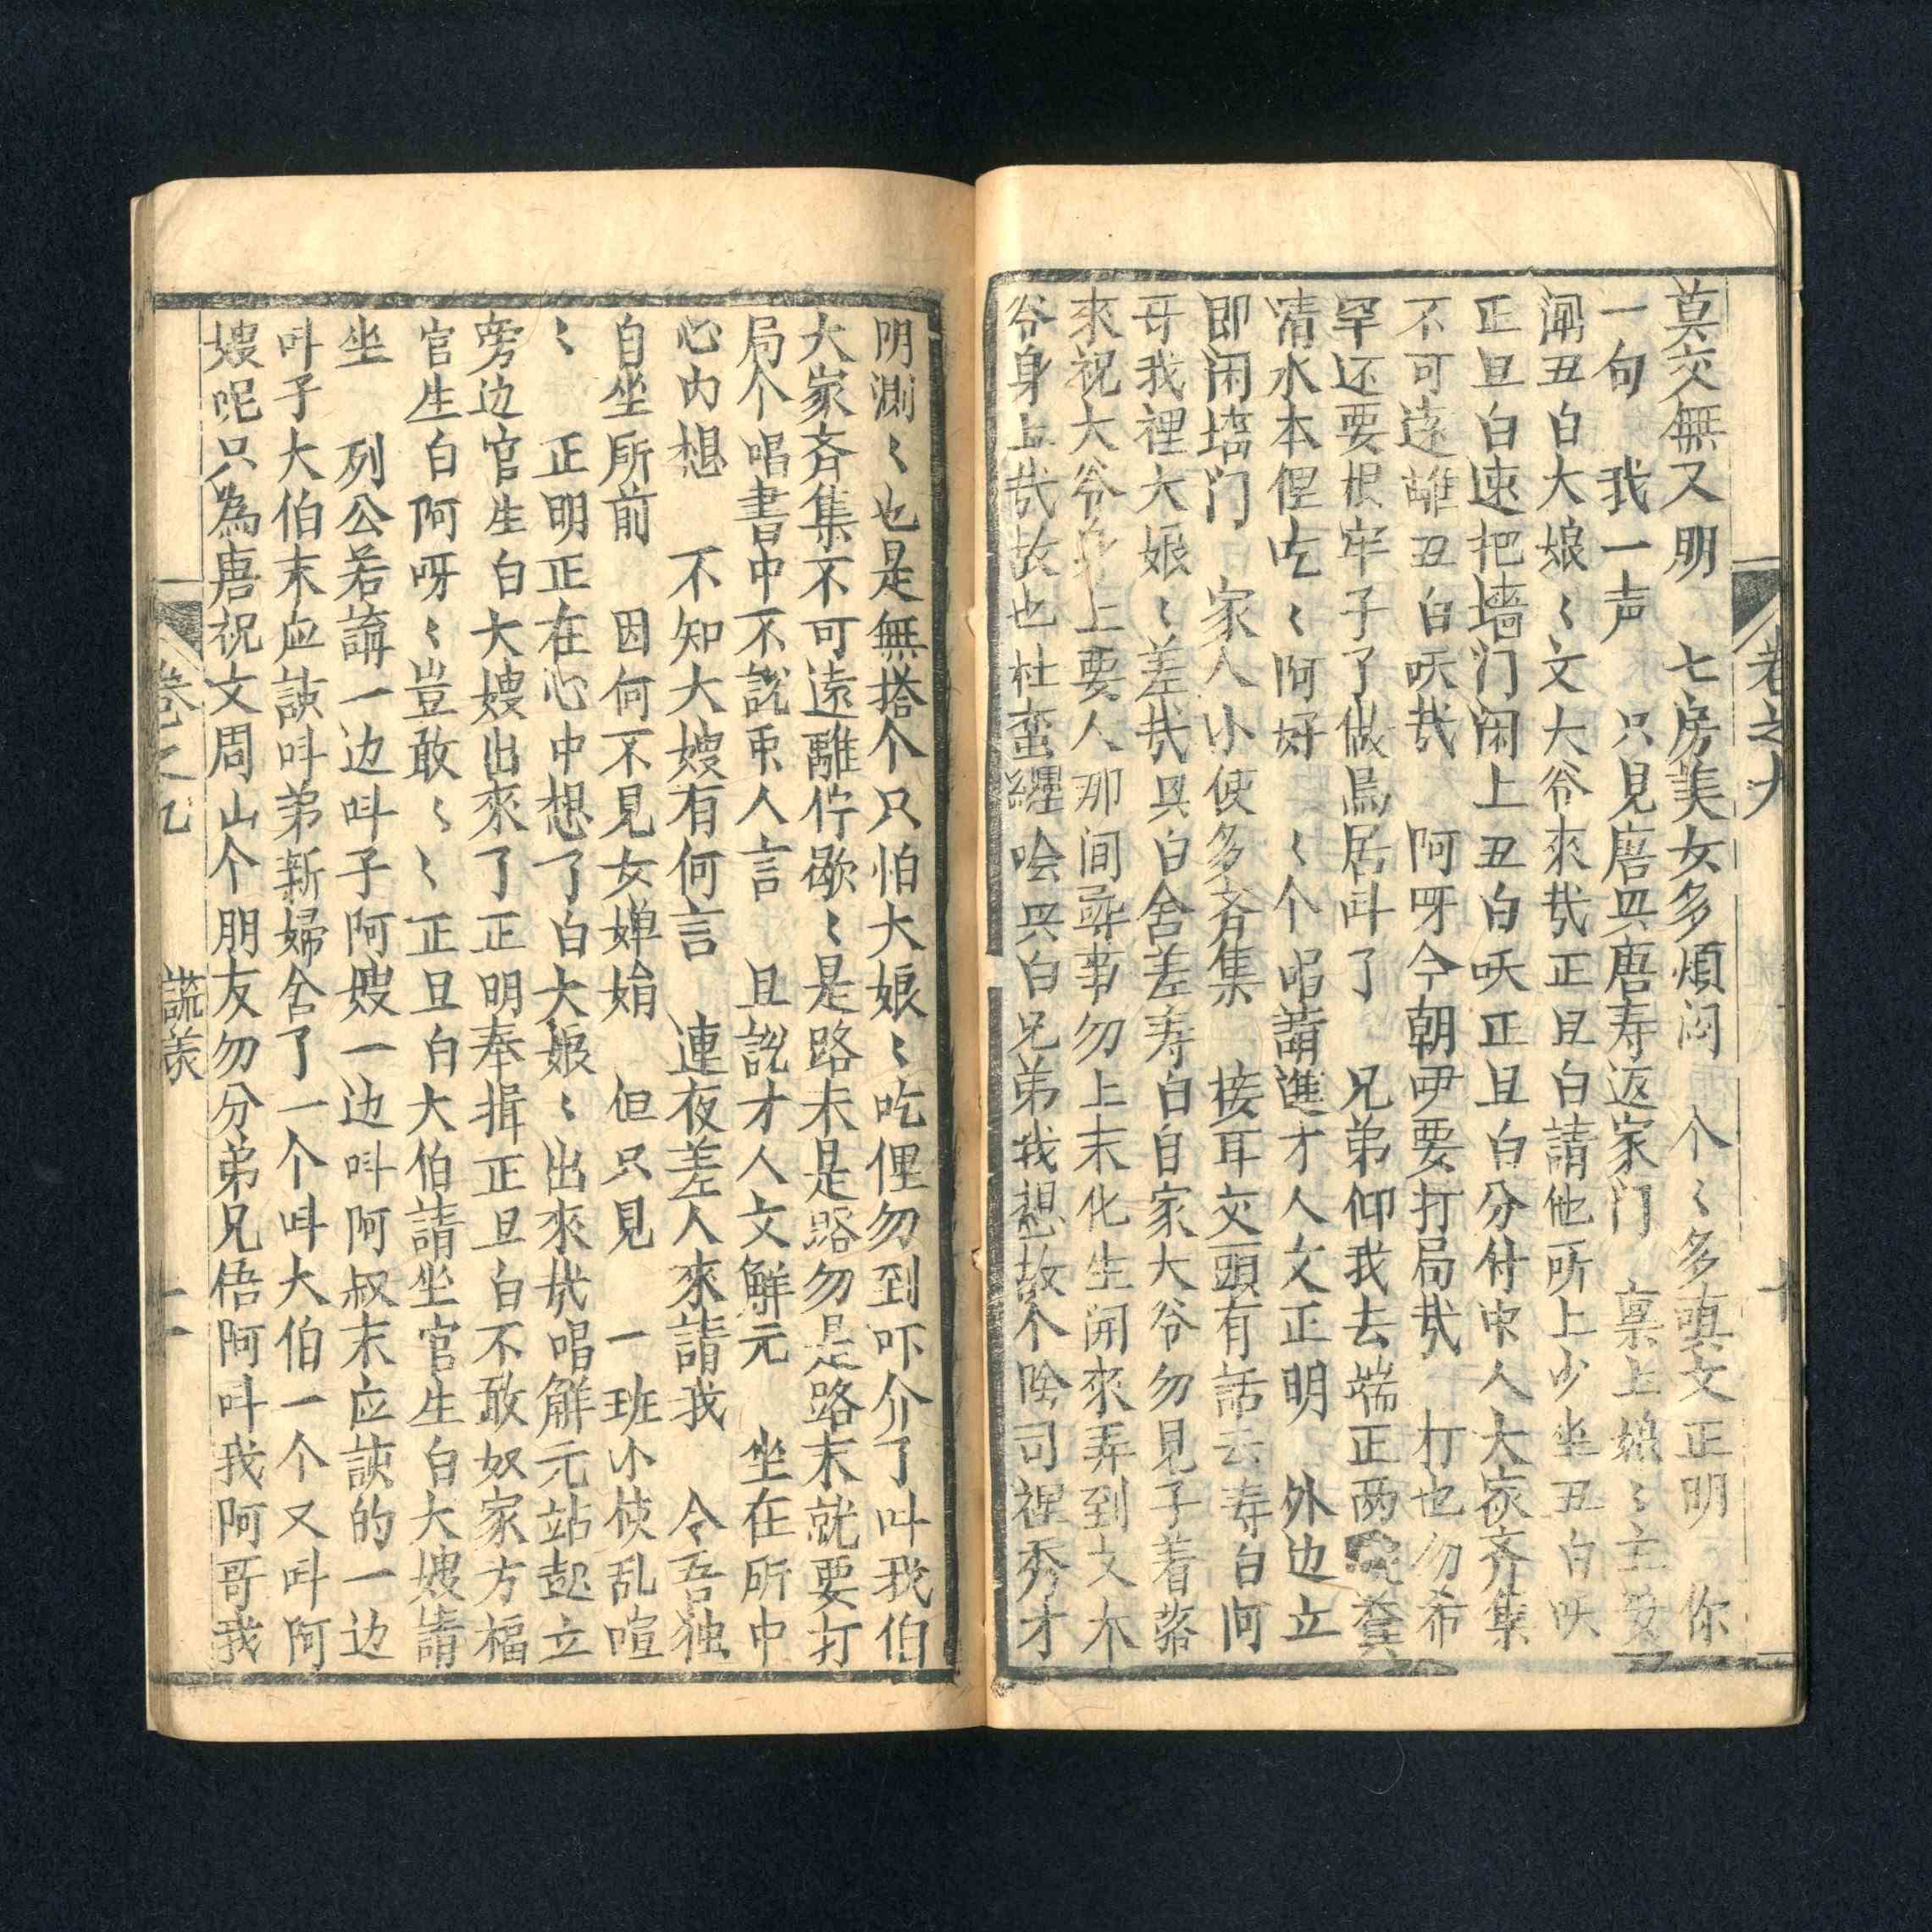 莫交無又明　七房美女多煩悶　个〻多嗔文正明　你
一句　我一声　只見唐興唐寿返家门　禀上娘〻主母
闻丑白大娘〻文大爷來哉正旦白請他所上少坐丑白吷
正旦白速把墻门闲上丑白吷正旦白分付中人大家齐集
不可遠離丑白吷哉　阿呀今朝吚要打局哉　打也勿希
罕还要根牢子了做烏居呌了　兄弟仰我去端正两碗糞
清水本俚吃〻阿好　〻个唱請進才人文正明　外边立
即闲墻门　家人小使多斉集　接耳交頭有話云寿白阿
哥我裡大娘〻差哉興白舍差寿白自家大爷勿見子着落
來祝大爷身上要人那间尋事勿上末化生闹來弄到文木
爷身上哉故也杜蛮纏哙興白兄弟我想故个陰司裡秀才
卷之九
阴测〻也是無搭个只怕大娘〻吃俚勿到吓介了叫我伯
大家斉集不可遠離佇歇〻是路未是路勿是路末就要打
局个唱書中不說衆人言　且說才人文解元　坐在所中
心内想　不知大嫂有何言　連夜差人來請我　令吾独
自坐所前　因何不見女婵娟　但只見　一班小使乱喧
〻　正明正在心中想了白大娘〻出來哉唱解元站起立
旁边官生白大嫂出來了正明奉揖正旦白不敢奴家方福
官生白阿呀〻豈敢〻〻正旦白大伯請坐官生白大嫂請
坐　列公若論一边呌子阿嫂一边呌阿叔末应該的一边
呌子大伯末应該呌弟新婦舍了一个呌大伯一个又呌阿
嫂呢只為唐祝文周山个朋友勿分弟兄俉阿呌我阿哥我
卷之九　謊羨　十一